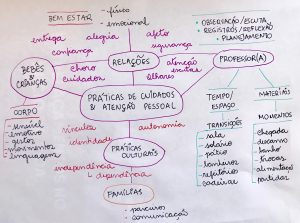 BEM ESTAR
- física
- emocional
• OBSERVAÇÃO/ESCUTA
• REGISTROS/REFLEXÃO
• PLANEJAMENTO
entrega
alegria
afeto
confiança
segurança
RELAÇÕES
PROFESSOR(A)
BEBÊS
& CRIANÇAS
choro
cuidador
atenção
escuta
olhares
CORPO
- sensível
- emotivo
- gestos
- movimentos
- linguagens
PRÁTICAS DE CUIDADOS
& ATENÇÃO PESSOAL
TEMPO/
ESPAÇO
MATERIAIS
TRANSIÇÕES
- sala
- solário
- pátio
- banheiros
- refeitório
MOMENTOS
- chegada
- descanso
- banho
- trocas
- alimentação
- partidas
vínculos
autonomia
identidade
PRÁTICAS
CULTURAIS
independência
dependência
FAMÍLIAS
- parceiros
- comunicação